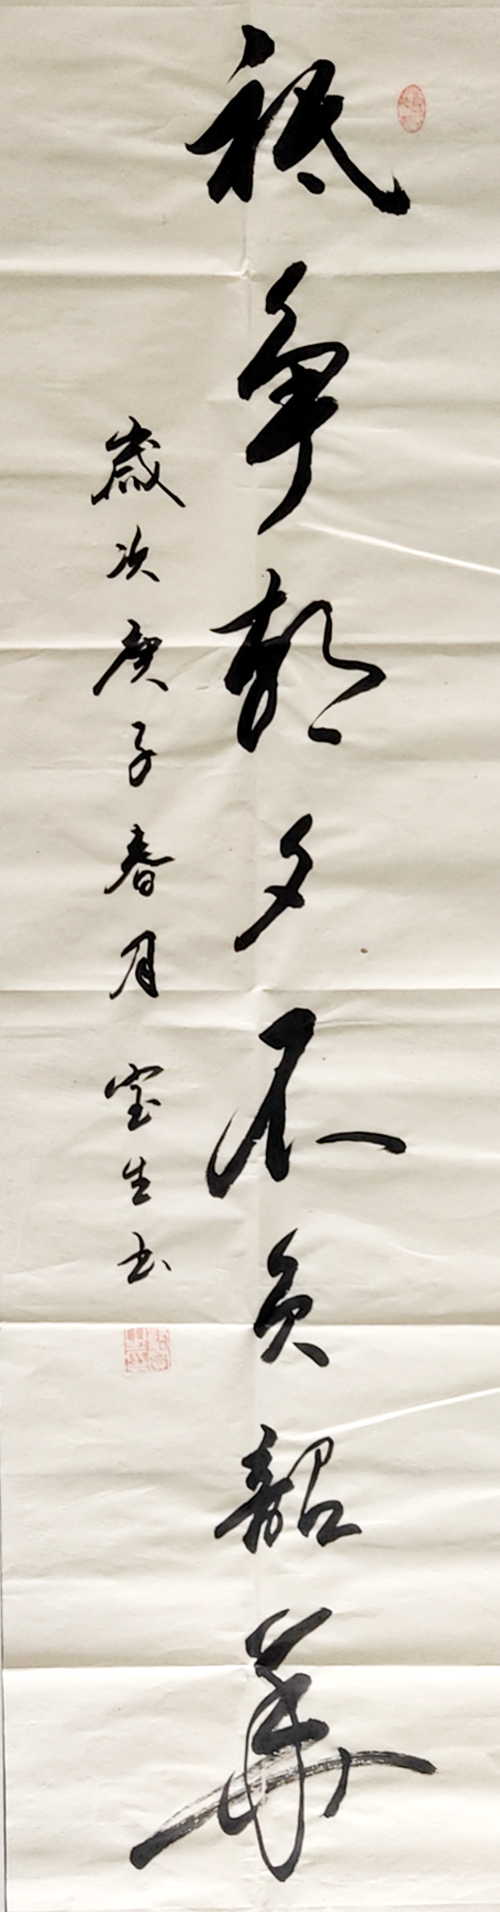 祗争朝夕不负韶华
岁次庚子春月宝生书